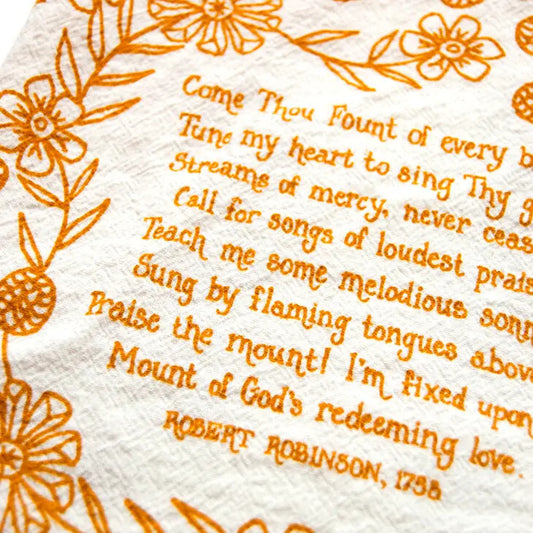 Come Thou Fount of every b
Tune my heart to sing Thy g
Streams of mercy, never ceas
Call for songs of loudest prais
Teach me some melodious sonn
Sung by flaming tongues above
Praise the mount! I'm fixed upon
Mount of God's redeeming love.
ROBERT ROBINSON, 1758